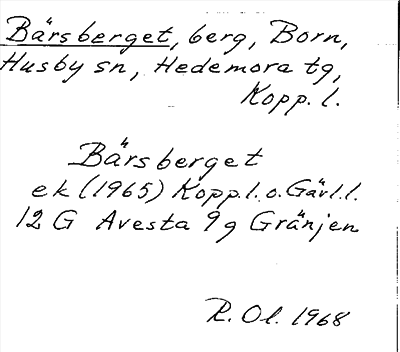 Bärsberget, berg, Born,
Husby sn, Hedemora tg,
Kopp. l.
Bärsberget
ek (1965) Kopp.l. o. Gävl.l.
12 G Avesta 9g Gränjen
R. Ol. 1968